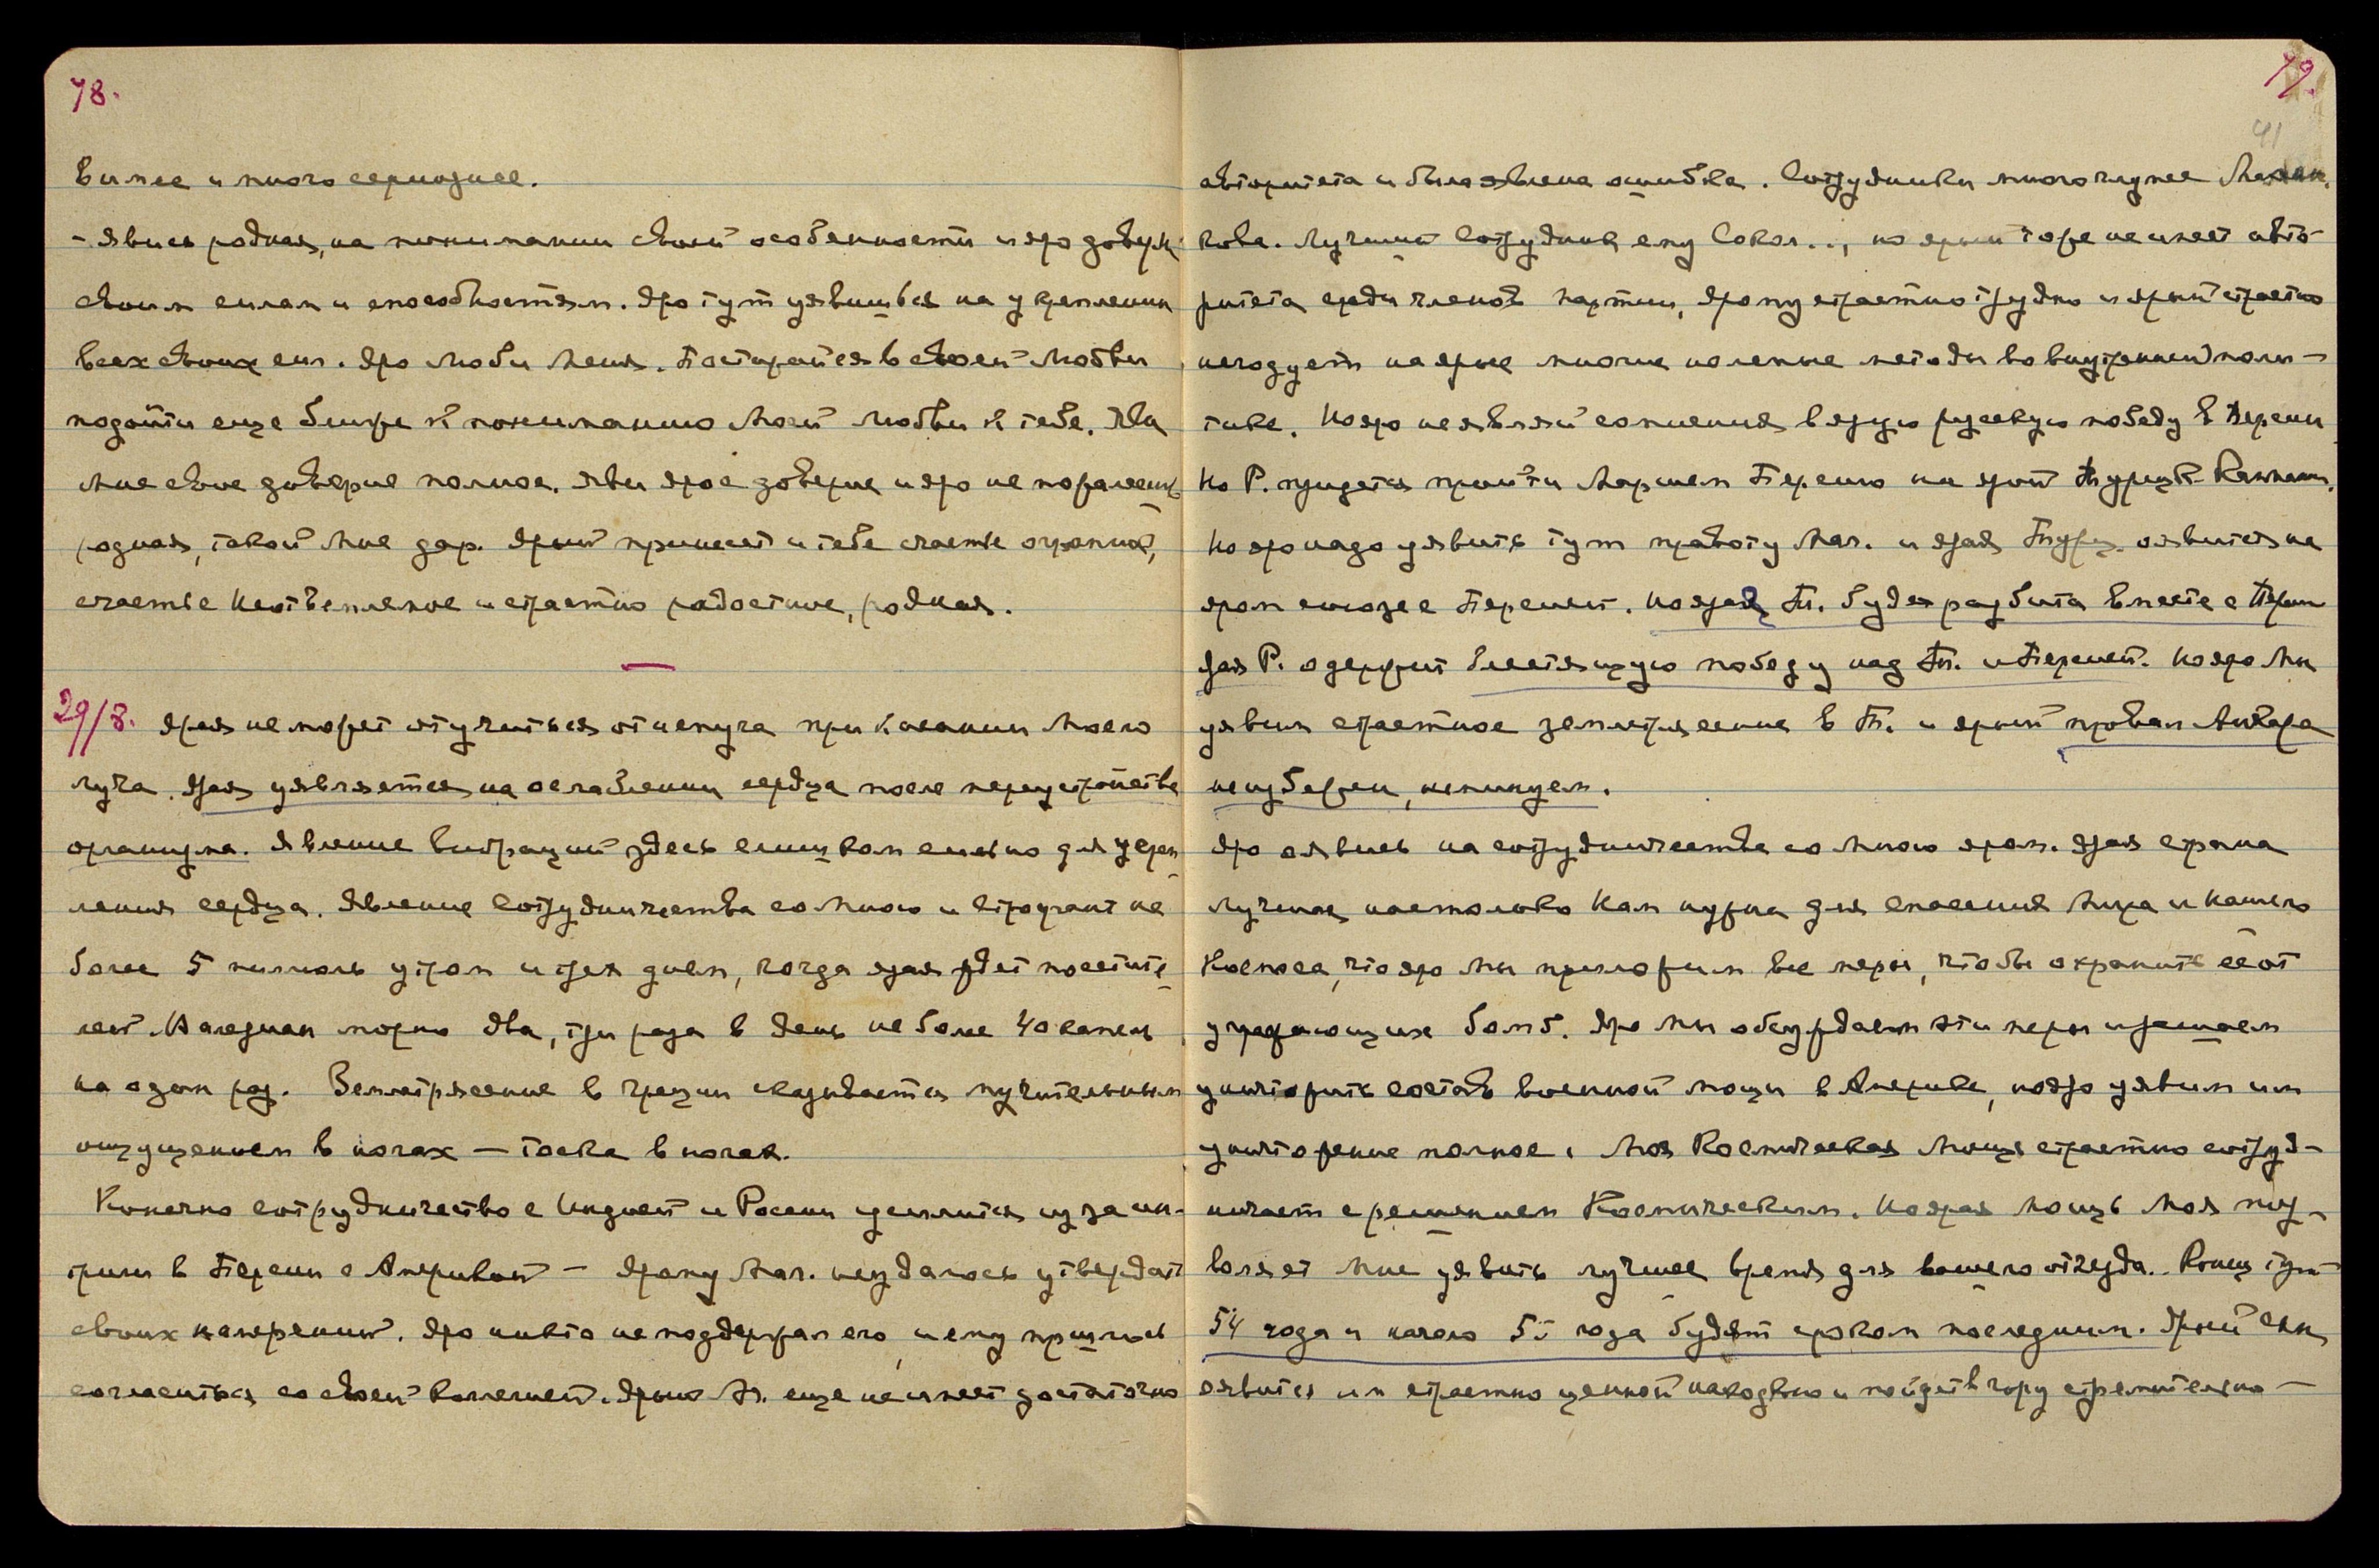 78.
вилее и много сериознее.
- Явись родная, на понимании своей особенности и яро доверяй
своим силам и способностям. Яро тут уявишься на укреплении
всех своих сил. Яро люби Меня. Постарайся в своей любви
подойти еще ближе к пониманию Моей любви к тебе. Яви
Мне свое доверие полное. Яви ярое доверие и яро не пожалеешь,
родная, такой Мне дар. Ярый принесет и тебе счастье огромное,
счастье неотъемлемое и страстно радостное, родная.
29/8. Ярая не может отучиться от испуга при касании Моего
луча. Ярая уявляется на ослаблении сердца после переустройства
организма. Явление вибраций здесь слишком сильно для укреп
ления сердца. Явление сотрудничества со Мною и Строфант не
более 5 капель утром и тея днем, когда ярая ждет посетите
лей. Валериан можно два, три раза в день не более 40 капель
на один раз. Землетрясение в Греции сказывается мучительным
ощущением в ногах — тоска в ногах.
Конечно сотрудничество с Индией и России усилится из за ин-
триги в Персии с Америкой — Ярому Мал. не удалось утвердить
своих намерений. Яро никто не поддержал его, и ему пришлось
согласиться со своей коллегией. Ярый М. еще не имеет достаточно
79.
41
авторитета и была явлена ошибка. Сотрудники много глупее Мален.
кова. Лучший сотрудник ему Сокол.., но ярый тоже не имеет авто-
ритета среди членов партии, ярому страстно трудно и ярый страстно
негодует на ярые многие нелепые методы во внутренней поли-
тике. Но яро не являй сомнения в ярую русскую победу в Персии
Но Р. придется пройти маршем Персию на ярой Турецк. кампании.
Но яро надо уявить тут правоту Мал. и ярая Турц. оявится на
яром союзе с Персией. Но ярая Т. будет разбита вместе с Перси
Ярая Р. одержит блестящую победу над Т. и Персией. Но яро Мы
уявим страстное землетрясение в Т. и ярый провал Анкары
неизбежен, неминуем.
Яро оявись на сотрудничестве со Мною яром. Ярая страна
лучшая настолько Нам нужна для спасения Мира и Нашего
Космоса, что яро Мы приложим все меры, чтобы охранить ее от
угрожающих бомб. Яро Мы обсуждаем эти меры и решаем
уничтожить состав военной мощи в Америке, но яро уявим им
уничтожение полное. Моя Космическая Мощь страстно сотруд-
ничает с решением Космическим. Но ярая мощь Моя поз-
воляет Мне уявить лучшее время для вашего отъезда. Конец тут
54 года и начало 55 года будет сроком последним. Ярый
оявится им страстно ценной находкою и пойдет в гору стремительно —